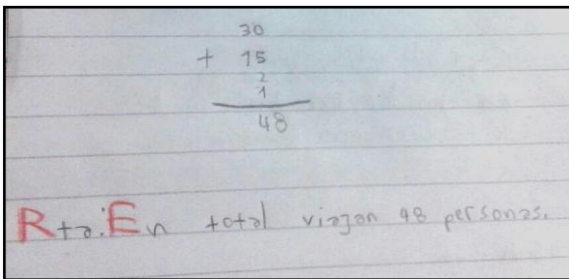 30
+ 15
2
1
48
Rta: En total viajan 48 personas.